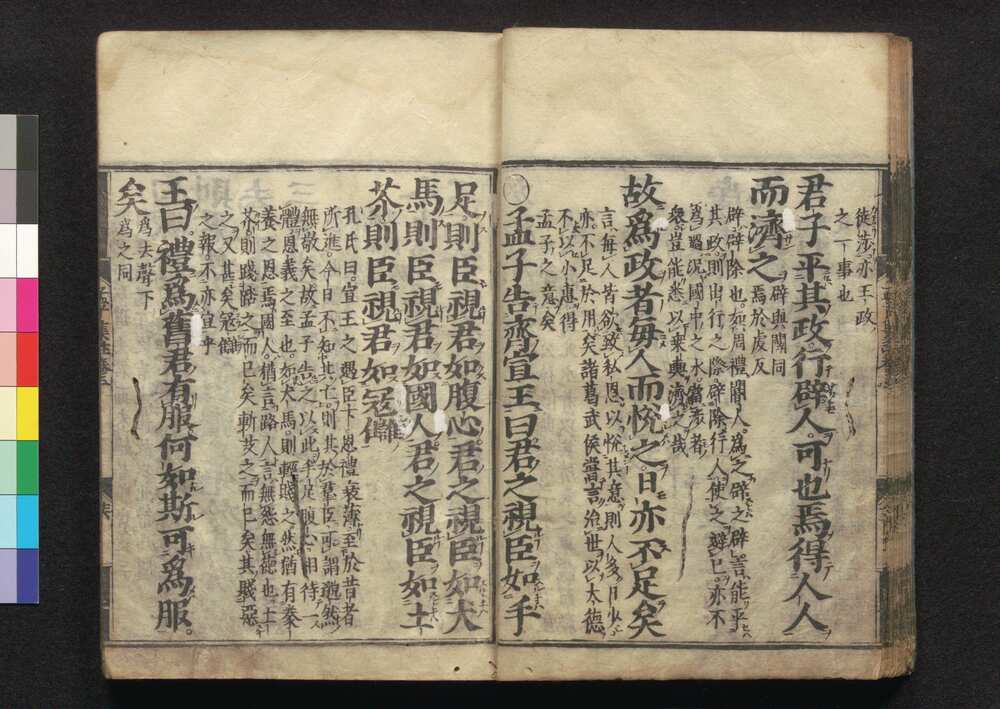 徒杠亦王政
之一事也
君子平其政行辟人可也焉得人人
而濟之
辟與闢同
焉於虔反
辟辟除也如周禮閽人爲之辟之辟言能平
其政則出行之際辟除行人使之辟己亦不
爲過況國中之水當涉者
衆豈能悉以乘輿濟之哉
故爲政者毎人而悅之日亦不足矣
言毎人皆欲致私恩以悅其意則人多日少
亦不足於用矣諸葛武侯嘗言治世以大德
不以小惠得
孟子之意矣
孟子告齊宣王曰君之視臣如手
足則臣視君如腹心君之視臣如犬
馬則臣視君如國人君之視臣如土
芥則臣視君如冦讎
孔氏曰宣王之遇臣下恩禮衰薄至於昔者
所進今日不知其亡則其於羣臣可謂邈然
無敬矣故孟子告之以此手足腹心相待
禮恩義之至也如犬馬則輕賤之然猶有豢
養之恩焉國人猶言路人言無怨無德也土
芥則踐踏之而已矣斬艾之而已矣其賤惡
之又甚矣冦讎
之報不亦宜乎
王曰禮爲舊君有服何如斯可爲服
矣
爲去聲下
爲之同